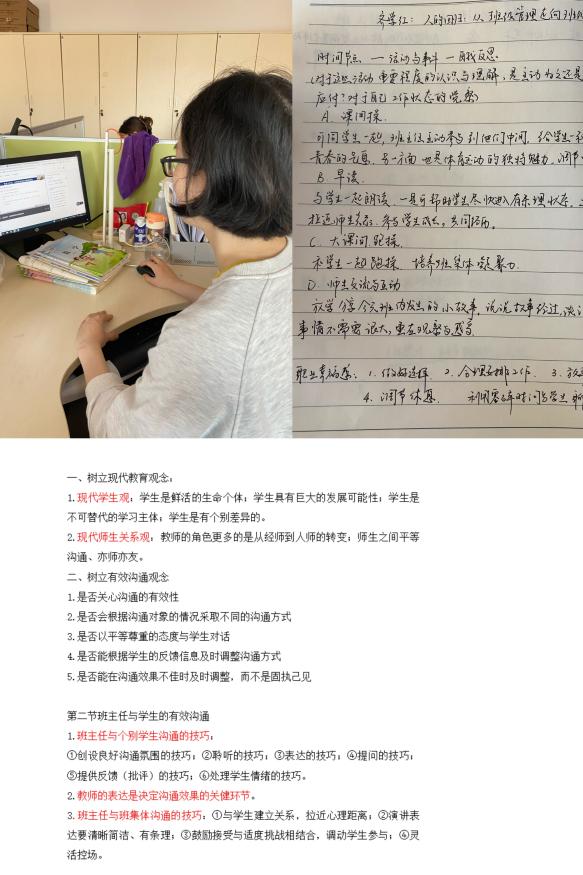 齐学红：人的回归：从班级管理走向班级
时间节点 — 活动与事件 — 自我反思
（对于这些活动重要程度的认识与理解，是主动为之还是
应付？对于自己工作状态的觉察）
A. 课间操
可同学生一起，班主任主动参与到他们中间，给学生一种
青春的气息，另一方面也具体有运动的独特魅力，调节
B. 早读
与学生一起朗读，一是可帮助学生尽快进入有条理状态，二
拉近师生关系，参与学生成长，共同经历。
C. 大课间 跑操
和学生一起跑操 培养班集体凝聚力
D. 师生交流与互动
放学分享今天班内发生的小故事，说说故事经过，谈
事情不需要很大，重在观察与感受
职业幸福感：1. 做好选择 2. 合理安排工作 3.
4. 调节休息 利用零碎时间与学生
一、树立现代教育观念：
1.现代学生观：学生是鲜活的生命个体；学生具有巨大的发展可能性；学生是
不可替代的学习主体；学生是有个别差异的。
2.现代师生关系观：教师的角色更多的是从经师到人师的转变；师生之间平等
沟通、亦师亦友。
二、树立有效沟通观念
1.是否关心沟通的有效性
2.是否会根据沟通对象的情况采取不同的沟通方式
3.是否以平等尊重的态度与学生对话
4.是否能根据学生的反馈信息及时调整沟通方式
5.是否能在沟通效果不佳时及时调整，而不是固执己见
第二节班主任与学生的有效沟通
1.班主任与个别学生沟通的技巧：
①创设良好沟通氛围的技巧；②聆听的技巧；③表达的技巧；④提问的技巧；
⑤提供反馈（批评）的技巧；⑥处理学生情绪的技巧。
2.教师的表达是决定沟通效果的关健环节。
3.班主任与班集体沟通的技巧：①与学生建立关系，拉近心理距离；②演讲表
达要清晰简洁、有条理；③鼓励接受与适度挑战相结合，调动学生参与；④灵
活控场。